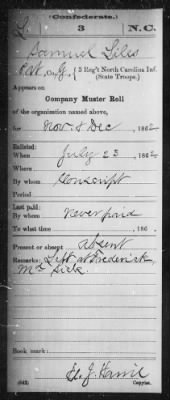 (Confederate.)
L 3 N.C.
Samuel Liles
Pvt, Co. G, { 3 Reg't North Carolina Inf.
(State Troops.)
Appears on
Company Muster Roll
of the organization named above,
for Nov. & Dec, 1862
Enlisted:
When July 23, 1862
Where
By whom Conscript
Period
Last paid:
By whom Never paid
To what time , 186 .
Present or absent absent
Remarks: Left at Frederick,
Md Sick.
Book mark:
(642)
Copyist.